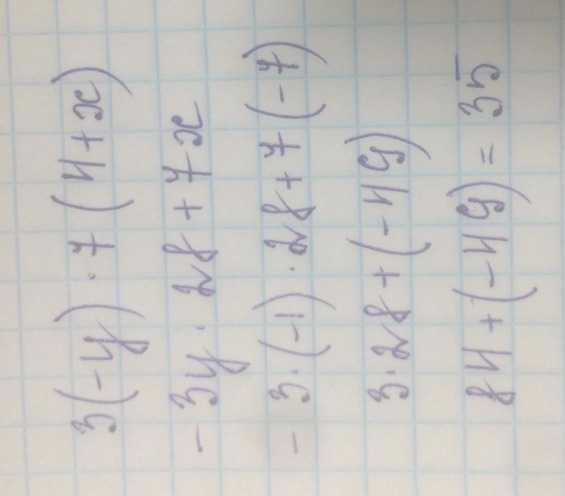 3(-y) · 7(4+x)
-3y · 28 + 7x
-3·(-1) · 28 + 7(-7)
3·28 + (-49)
84 + (-49) = 35